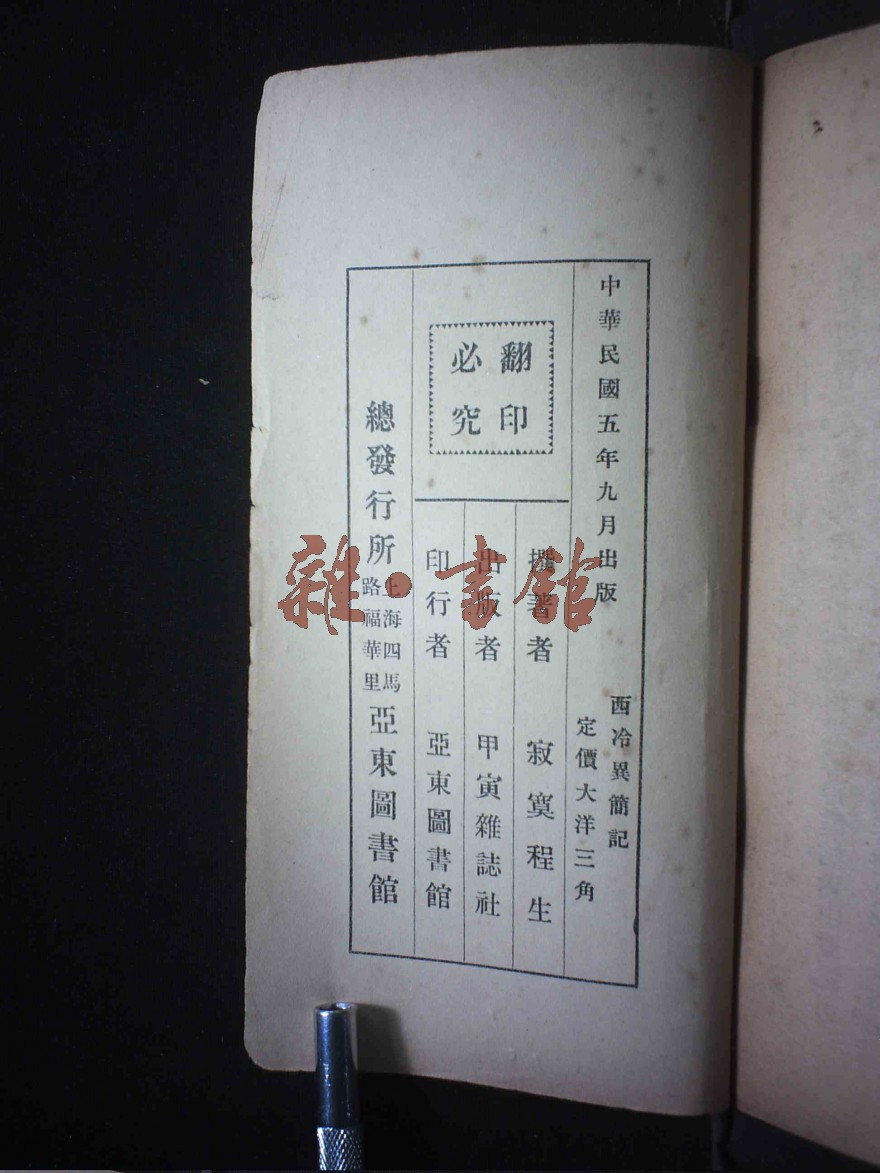 中華民國五年九月出版
西冷異簡記
定價大洋三角
翻印
必究
撰著者 寂寞程生
出版者 甲寅雜誌社
印行者 亞東圖書館
總發行所 上海四馬路福華里 亞東圖書館
雜·書館